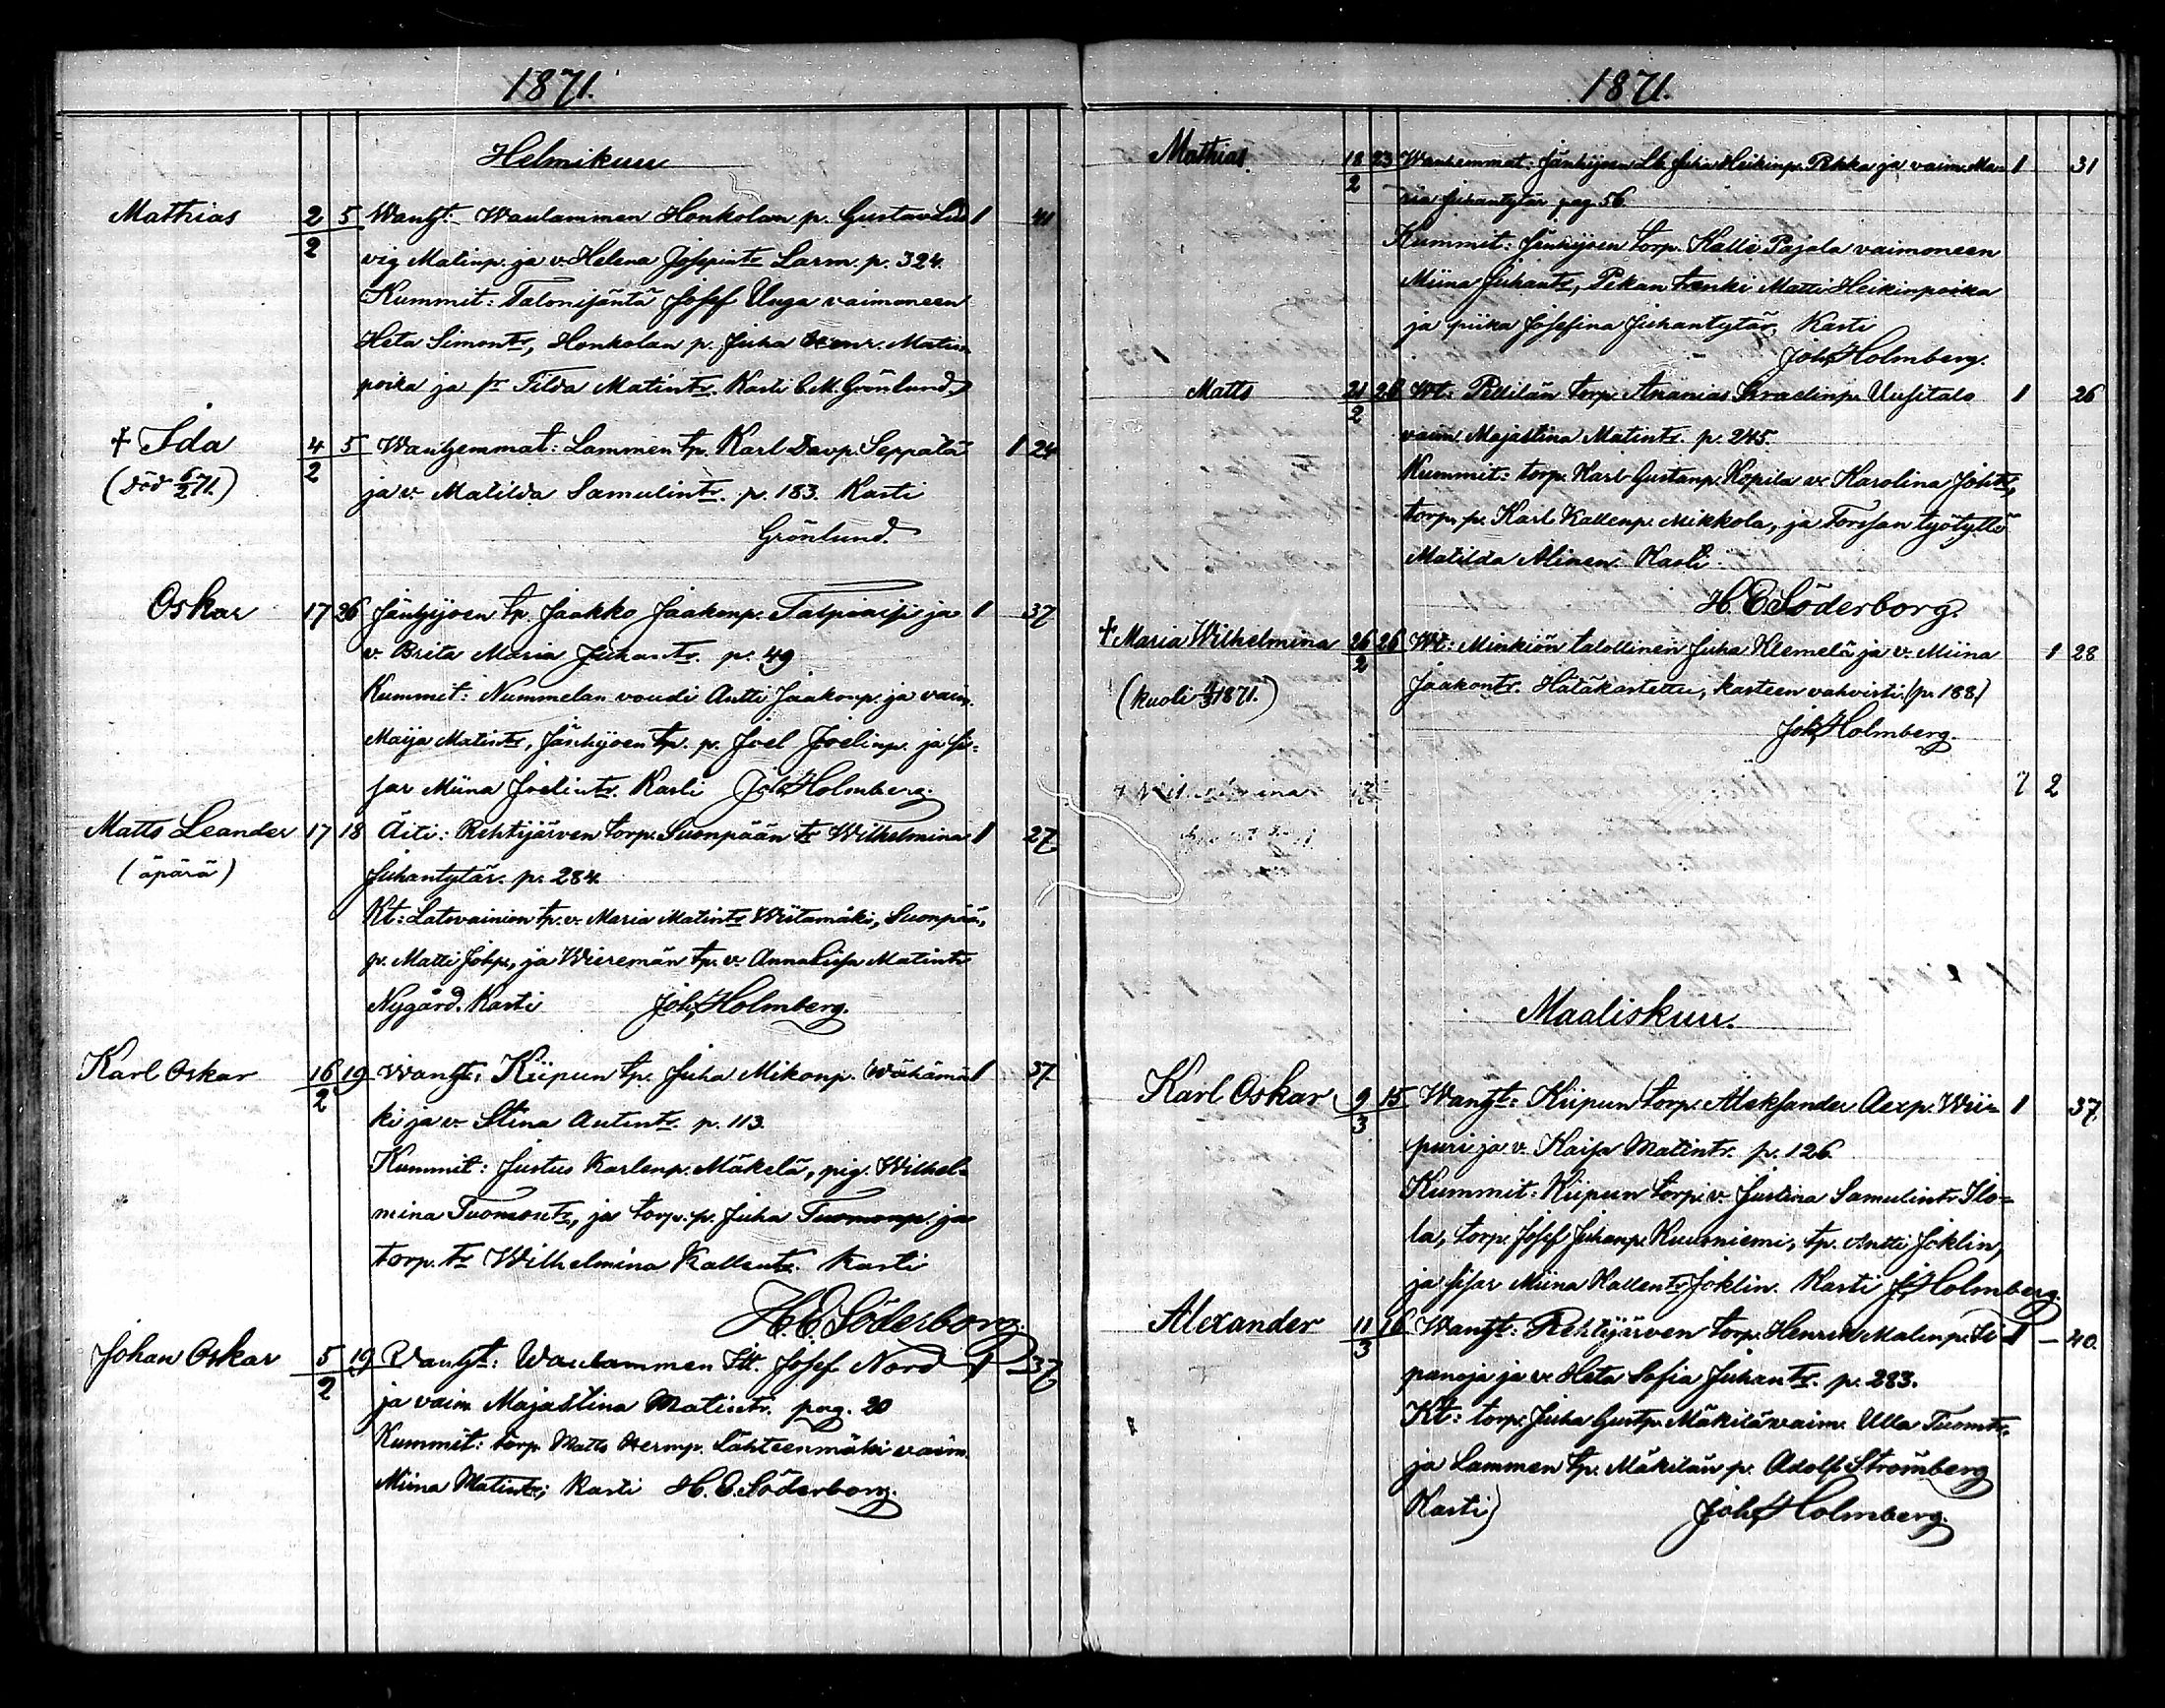 1871.
Helmikuu
Mathias 2/2 5 Wanht: Waulammen Honkolan p. Gustav Lud 1 41
vig Matinp. ja v. Helena Josepintr Larm. p. 324.
Kummit: Talonisäntä Josef Unga vaimoneen
Heta Simontr, Honkolan p. Juha Henr. Matin
poika ja pr Tilda Matintr. Kasti C.M. Grönlund.
† Ida 4/2 5 Wanhemmat: Lammen tp. Karl Davp. Seppälä 1 24
(död 6/2 71.) ja v. Matilda Samulintr. p. 183. Kasti
Grönlund.
Oskar 17 26 Jänhijoen tp. Jaakko Jaakonp. ja 1 37
v. Brita Maria Juhantr. p. 49
Kummit: Nummelan voudi Antti Jaakonp. ja vaim.
Maija Matintr, Jänhijoen tp. p. Joel Joelinp. ja si-
sar Miina Joelintr. Kasti Joh. Holmberg.
Matts Leander 17 18 Äiti: Rehtijärven torp. Suonpään tr Wilhelmina 1 27
(äpärä) Juhantytär. p. 284.
Kt: Latovainion tp. v. Maria Matintr Wiitamäki, Suonpää,
p. Matti Johp., ja Wieremän tp. v. Annaliisa Matintr
Nygård. Kasti Joh. Holmberg.
Karl Oskar 16/2 19 Wanht: Kiipun tp. Juha Mikonp. Wähämä 1 37
ki ja v. Stina Antintr. p. 113.
Kummit: Justus Karlenp. Mäkelä, pig. Wilhel-
mina Tuomontr, ja torp. p. Juha Tuomonp. ja
torp. tr Wilhelmina Kallentr. Kasti
H. E. Söderborg.
Johan Oskar 5/2 19 Vanht: Waulammen Itt. Josef Nord 1 37
ja vaim. Majastina Matintr. pag. 20
Kummit: torp. Matts Hermp. Lähteenmäki vaim.
Miina Matintr; Kasti H. E. Söderborg.
1871.
Mathias. 18/2 23 Wanhemmat: Jänhijoen Lb. Juha Heikinp. Pekka ja vaim. Ma- 1 31
ria Juhantytär pag. 56
Kummit: Jänhijoen torp. Kalle Pajala vaimoneen
Miina Juhantr, Pekan trenki Matti Heikinpoika
ja piika Josefina Juhantytär, Kasti
Joh. Holmberg.
Matts 21/2 26 Wt: Pellilän torp. Ananias Israelinp. Uusitalo 1 26
vaim Majastina Matintr. p. 245.
Kummit: torp. Karl Gustanp. Kopila v. Karolina Johtr,
torp. p. Karl Kallenp. Mikkola, ja Forssan työtyttö
Matilda Alinen. Kasti
H. E. Söderborg.
† Maria Wilhelmina 26/2 26 Wt: Minkiön talollinen Juha Klemelä ja v. Miina 1 28
(kuoli 4/3 1871.) Jaakontr. Hätäkastettu, kasteen vahvisti. (p. 188)
Joh. Holmberg.
7 2
Maaliskuu.
Karl Oskar 9/3 15 Wanht: Kiipun torp. Aleksander Aexp. Wii- 1 37.
puri ja v. Kaisa Matintr. p. 126.
Kummit: Kiipun torp. v. Justina Samulintr Ilo-
la, torp. Josef Juhanp. Kuusniemi, tp. Antti Joklin,
ja sisar Miina Kallentr Joklin. Kasti J. Holmberg.
Alexander 11/3 16 Wanht: Rehtijärven torp. Henrik Matinp. Si- 1 - 40.
panoja ja v. Heta Sofia Juhantr. p. 283.
Kt: torp. Juha Gustp. Mäkilä vaim. Ulla Tuomtr.
ja Lammen tp. Mäkilän p. Adolf Strömberg
Kasti) Joh. Holmberg.